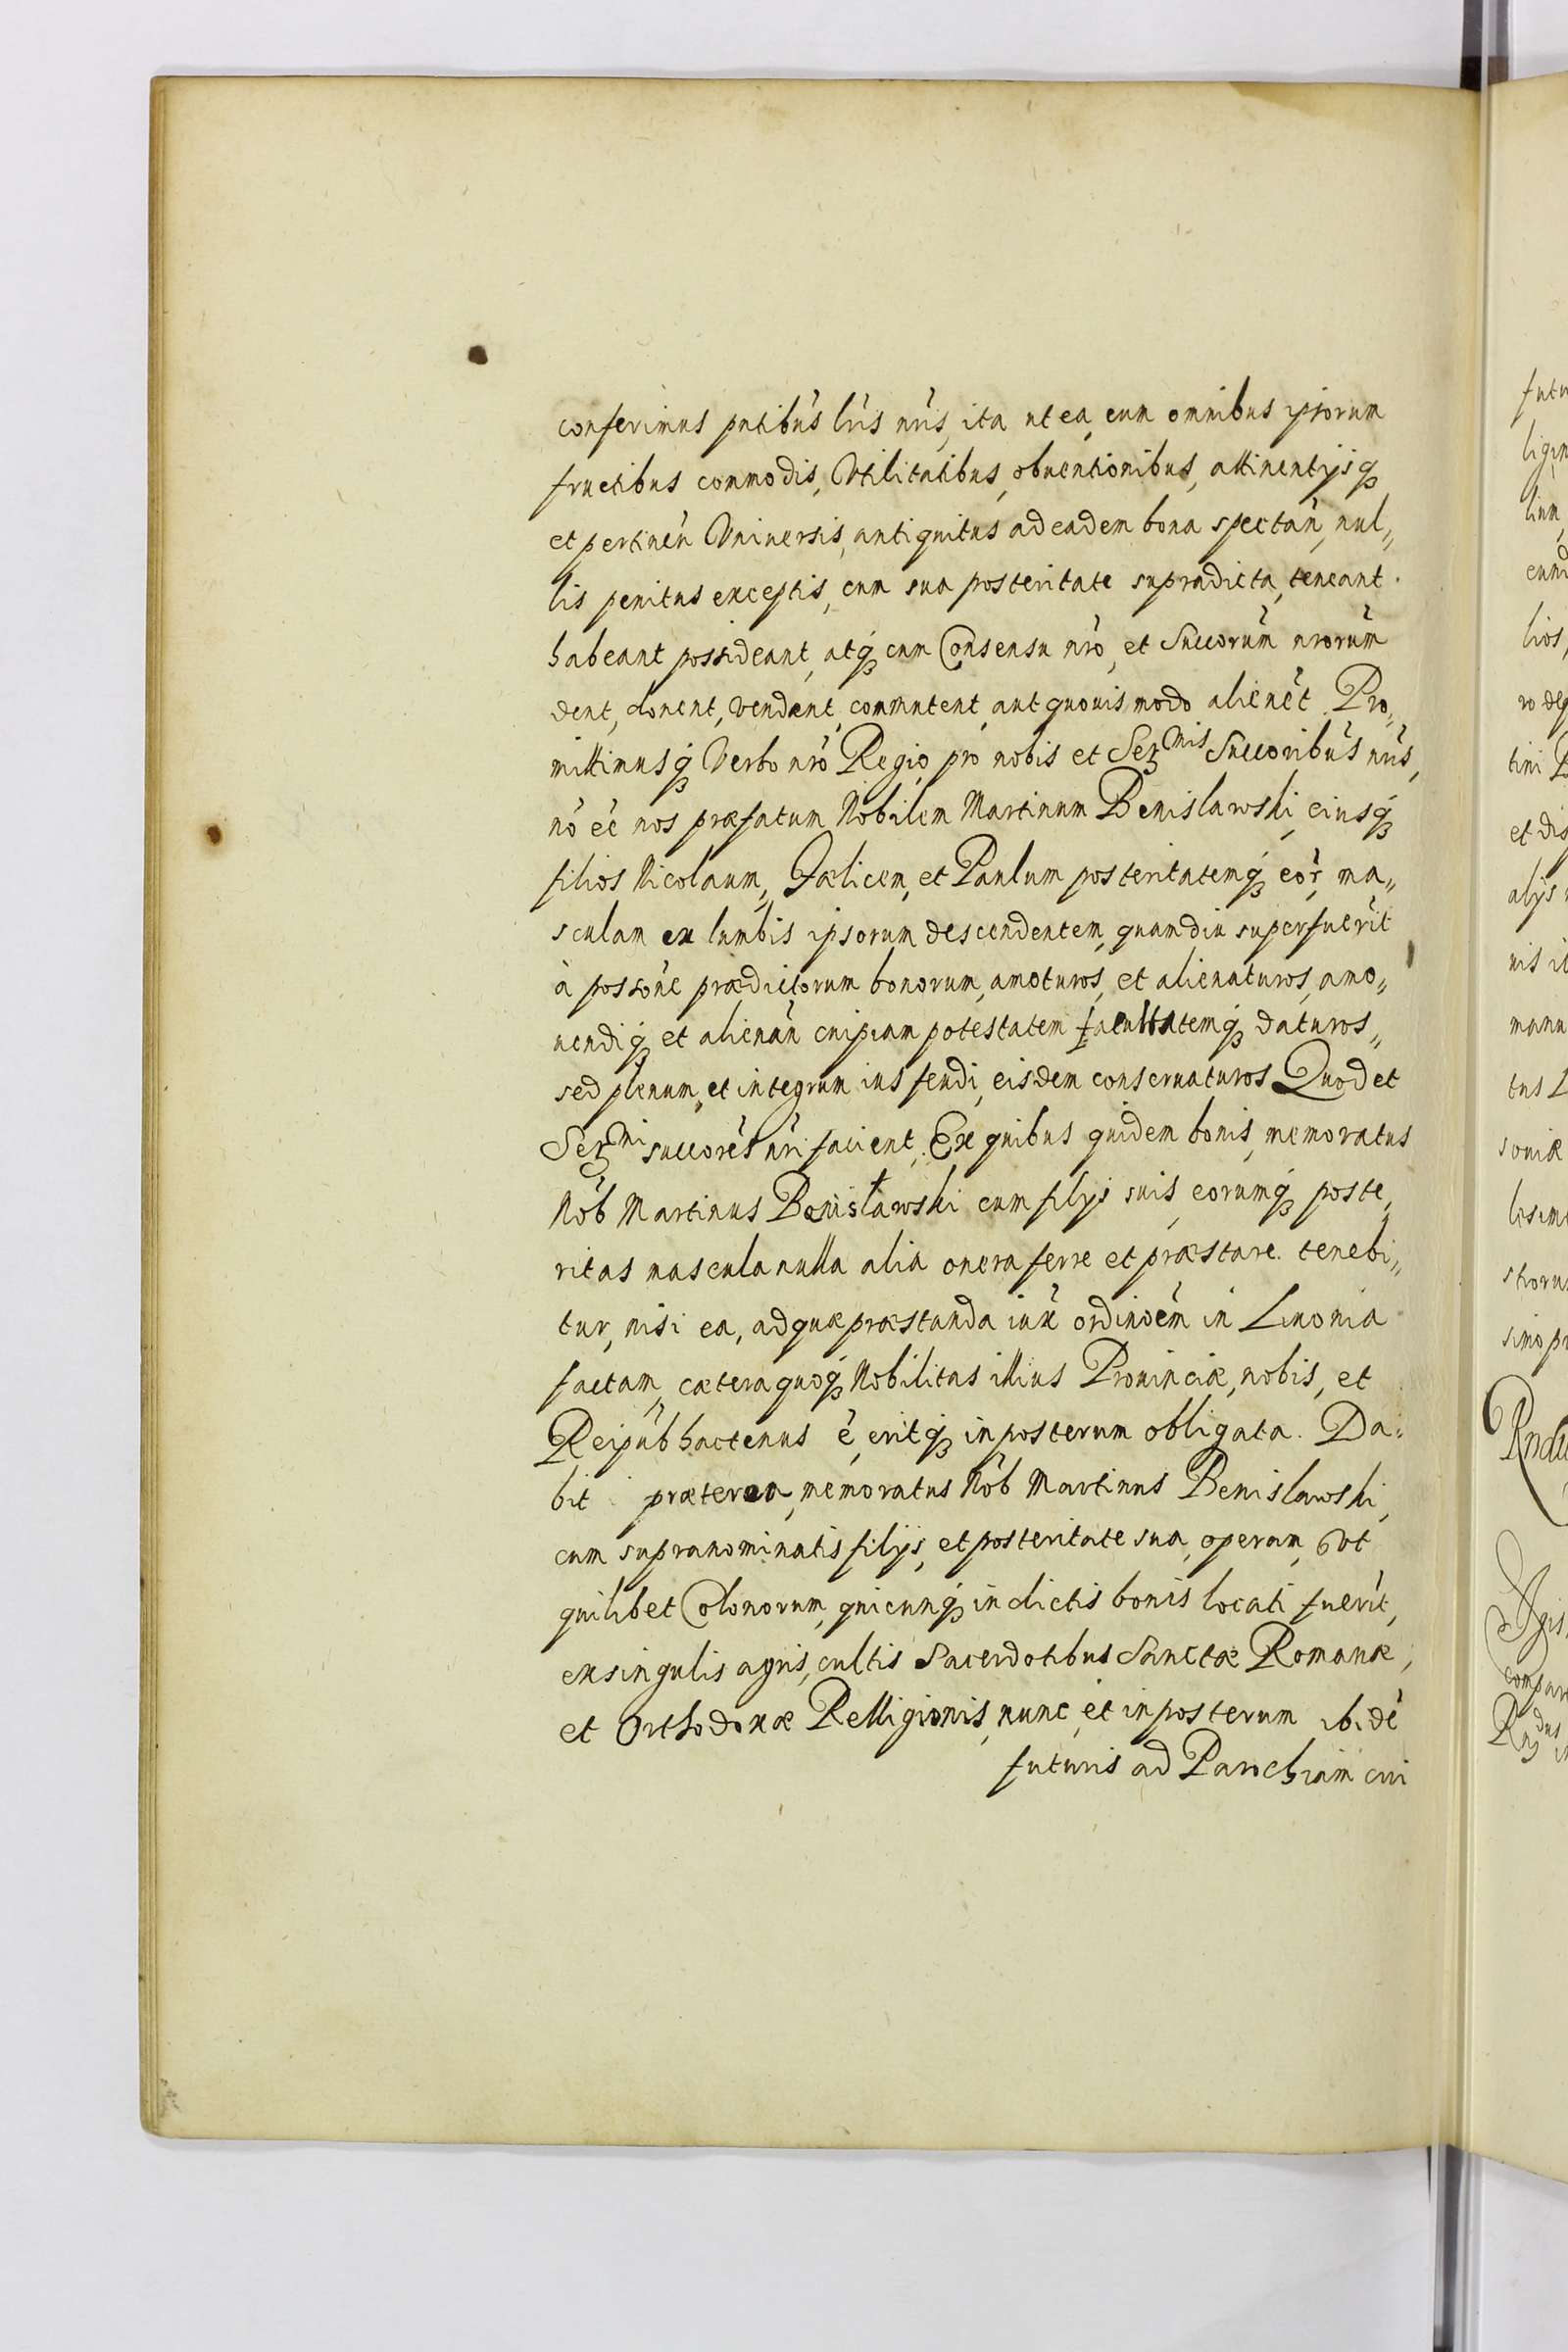 conferimus pntibus lris nris, ita ut ea, cum omnibus ipsorum
fructibus commodis, Vtilitatibus, obuentionibus, attinentijsq
et pertinen Vniuersis, antiquitus ad eadem bona spectan, nul„
lis penitus exceptis, cum sua posteritate supradicta, teneant.
habeant possideant, atq cum Consensu nro, et Succorum nrorum
dent, donent, vendant, commutent, aut quouis modo alienet. Pro„
mittimusq Verbo nro Regio, pro nobis et Serᵐⁱˢ Succoribus nris,
no ee nos præfatum Nobilem Martinum Benislawski, eiusq
filios Nicolaum, Fælicem, et Paulum posteritatemq eor, ma„
sculam ex lumbis ipsorum descendentem, quamdiu superfuerit
à possone prædictorum bonorum, amoturos, et alienaturos, amo„
uendiq et alienan cuipiam potestatem facultatemq daturos„
sed plenum, et integrum ius feudi, eisdem conseruaturos Quod et
Serᵐⁱ succores nri facient. Ex quibus quidem bonis, memoratus
Nob Martinus Benisławski cum filijs suis, eorumq poste„
ritas mascula nulla alia onera ferre et præstare tenebi„
tur, nisi ea, ad quæ præstanda iux ordinoem in Liuonia
factam, cætera quoq Nobilitas illius Prouinciæ, nobis, et
Reipub hactenus e, eritq in posterum obligata. Da„
bit præterea, memoratus Nob Martinus Benislawski,
cum supranominatis filijs, et posteritate sua, operam, Vt
quilibet Colonorum, quicunq in dictis bonis locati fuerit,
ex singulis agris, cultis Sacerdotibus Sanctæ Romanæ,
et Orthodoxæ Relligionis, nunc, et in posterum ibide
futuris ad Parochiam cui